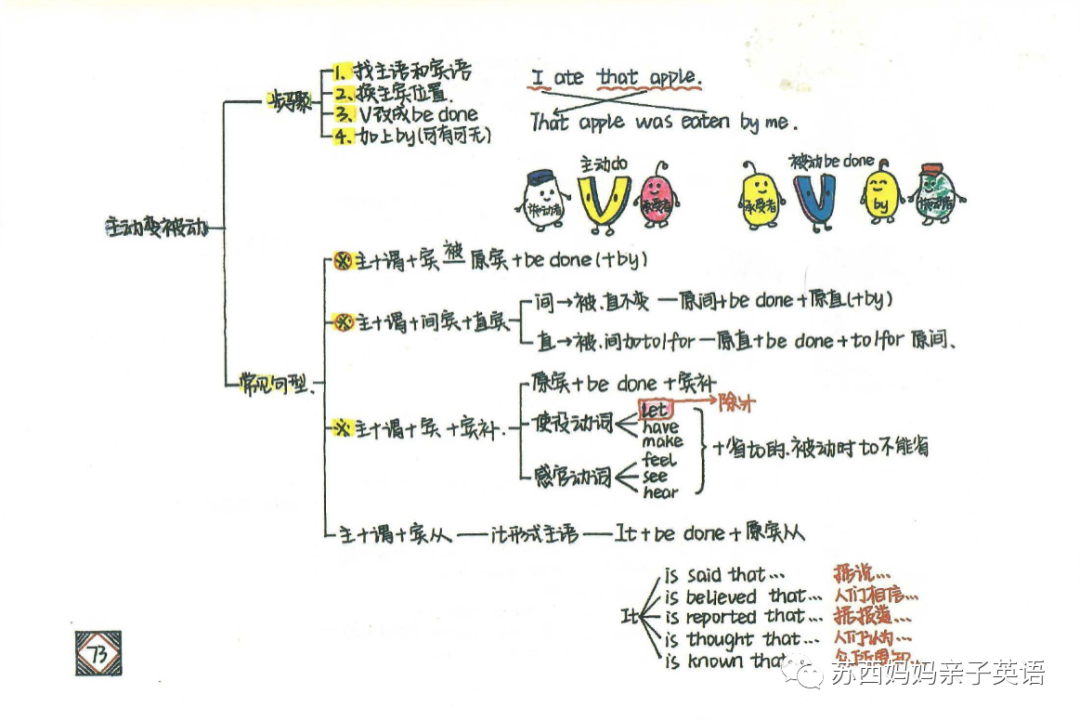 主动变被动
步骤
1、找主语和宾语
2、换主宾位置.
3、V改成be done
4、加上by(可有可无)
I ate that apple.
That apple was eaten by me.
主动do
施动者
V
承受者
被动be done
承受者
V
by
施动者
常见句型、
※ 主+谓+宾 被 原宾+be done(+by)
※ 主+谓+间宾+直宾
间→被.直不变 — 原间+be done+原直(+by)
直→被.间加to/for — 原直+be done+to/for 原间、
※ 主+谓+宾+宾补.
原宾+be done+宾补
使役动词
let → 除外
have
make
感官动词
feel
see
hear
+省to的.被动时to不能省
主+谓+宾从 — it形式主语 — It+be done+原宾从
It
is said that... 据说...
is believed that... 人们相信...
is reported that... 据报道...
is thought that... 人们认为...
is known that... 众所周知...
73
苏西妈妈亲子英语